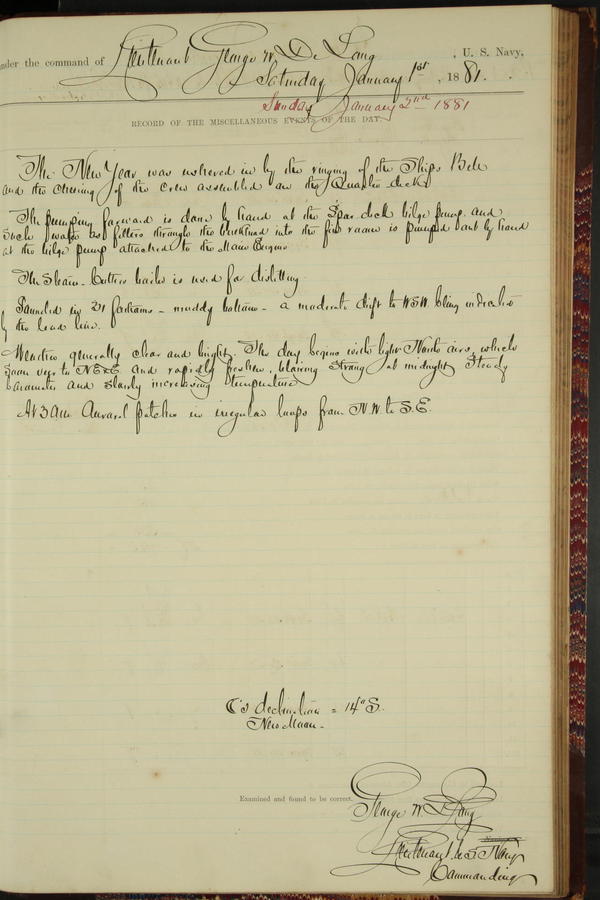 nder the command of Lieutenant George W. De Long , U. S. Navy,
Saturday January 1st , 1881.
Sunday January 2nd 1881
RECORD OF THE MISCELLANEOUS EVENTS OF THE DAY.
The New Year was ushered in by the ringing of the Ships Bell
and the cheering of the crew assembled on the Quarter deck
The pumping forward is done by hand at the Spar deck bilge pump, and
such water as filters through the bulkhead into the fire room is pumped out by hand
at the bilge pump attached to the Main Engine
The Steam-Cutters boiler is used for distilling
Sounded in 31 fathoms - muddy bottom - a moderate drift to WSW being indicated
by the lead line.
Weather generally clear and bright. The day begins with light North airs, which
soon veer to NExE and rapidly freshen, blowing strong at midnight. Steady
barometer and slowly increasing temperature
At 3 AM Auroral patches in irregular loops from N.W. to S.E.
☾'s declination = 14° S.
New Moon.
Examined and found to be correct.
George W. De Long
Lieutenant U.S. Navy
Commanding